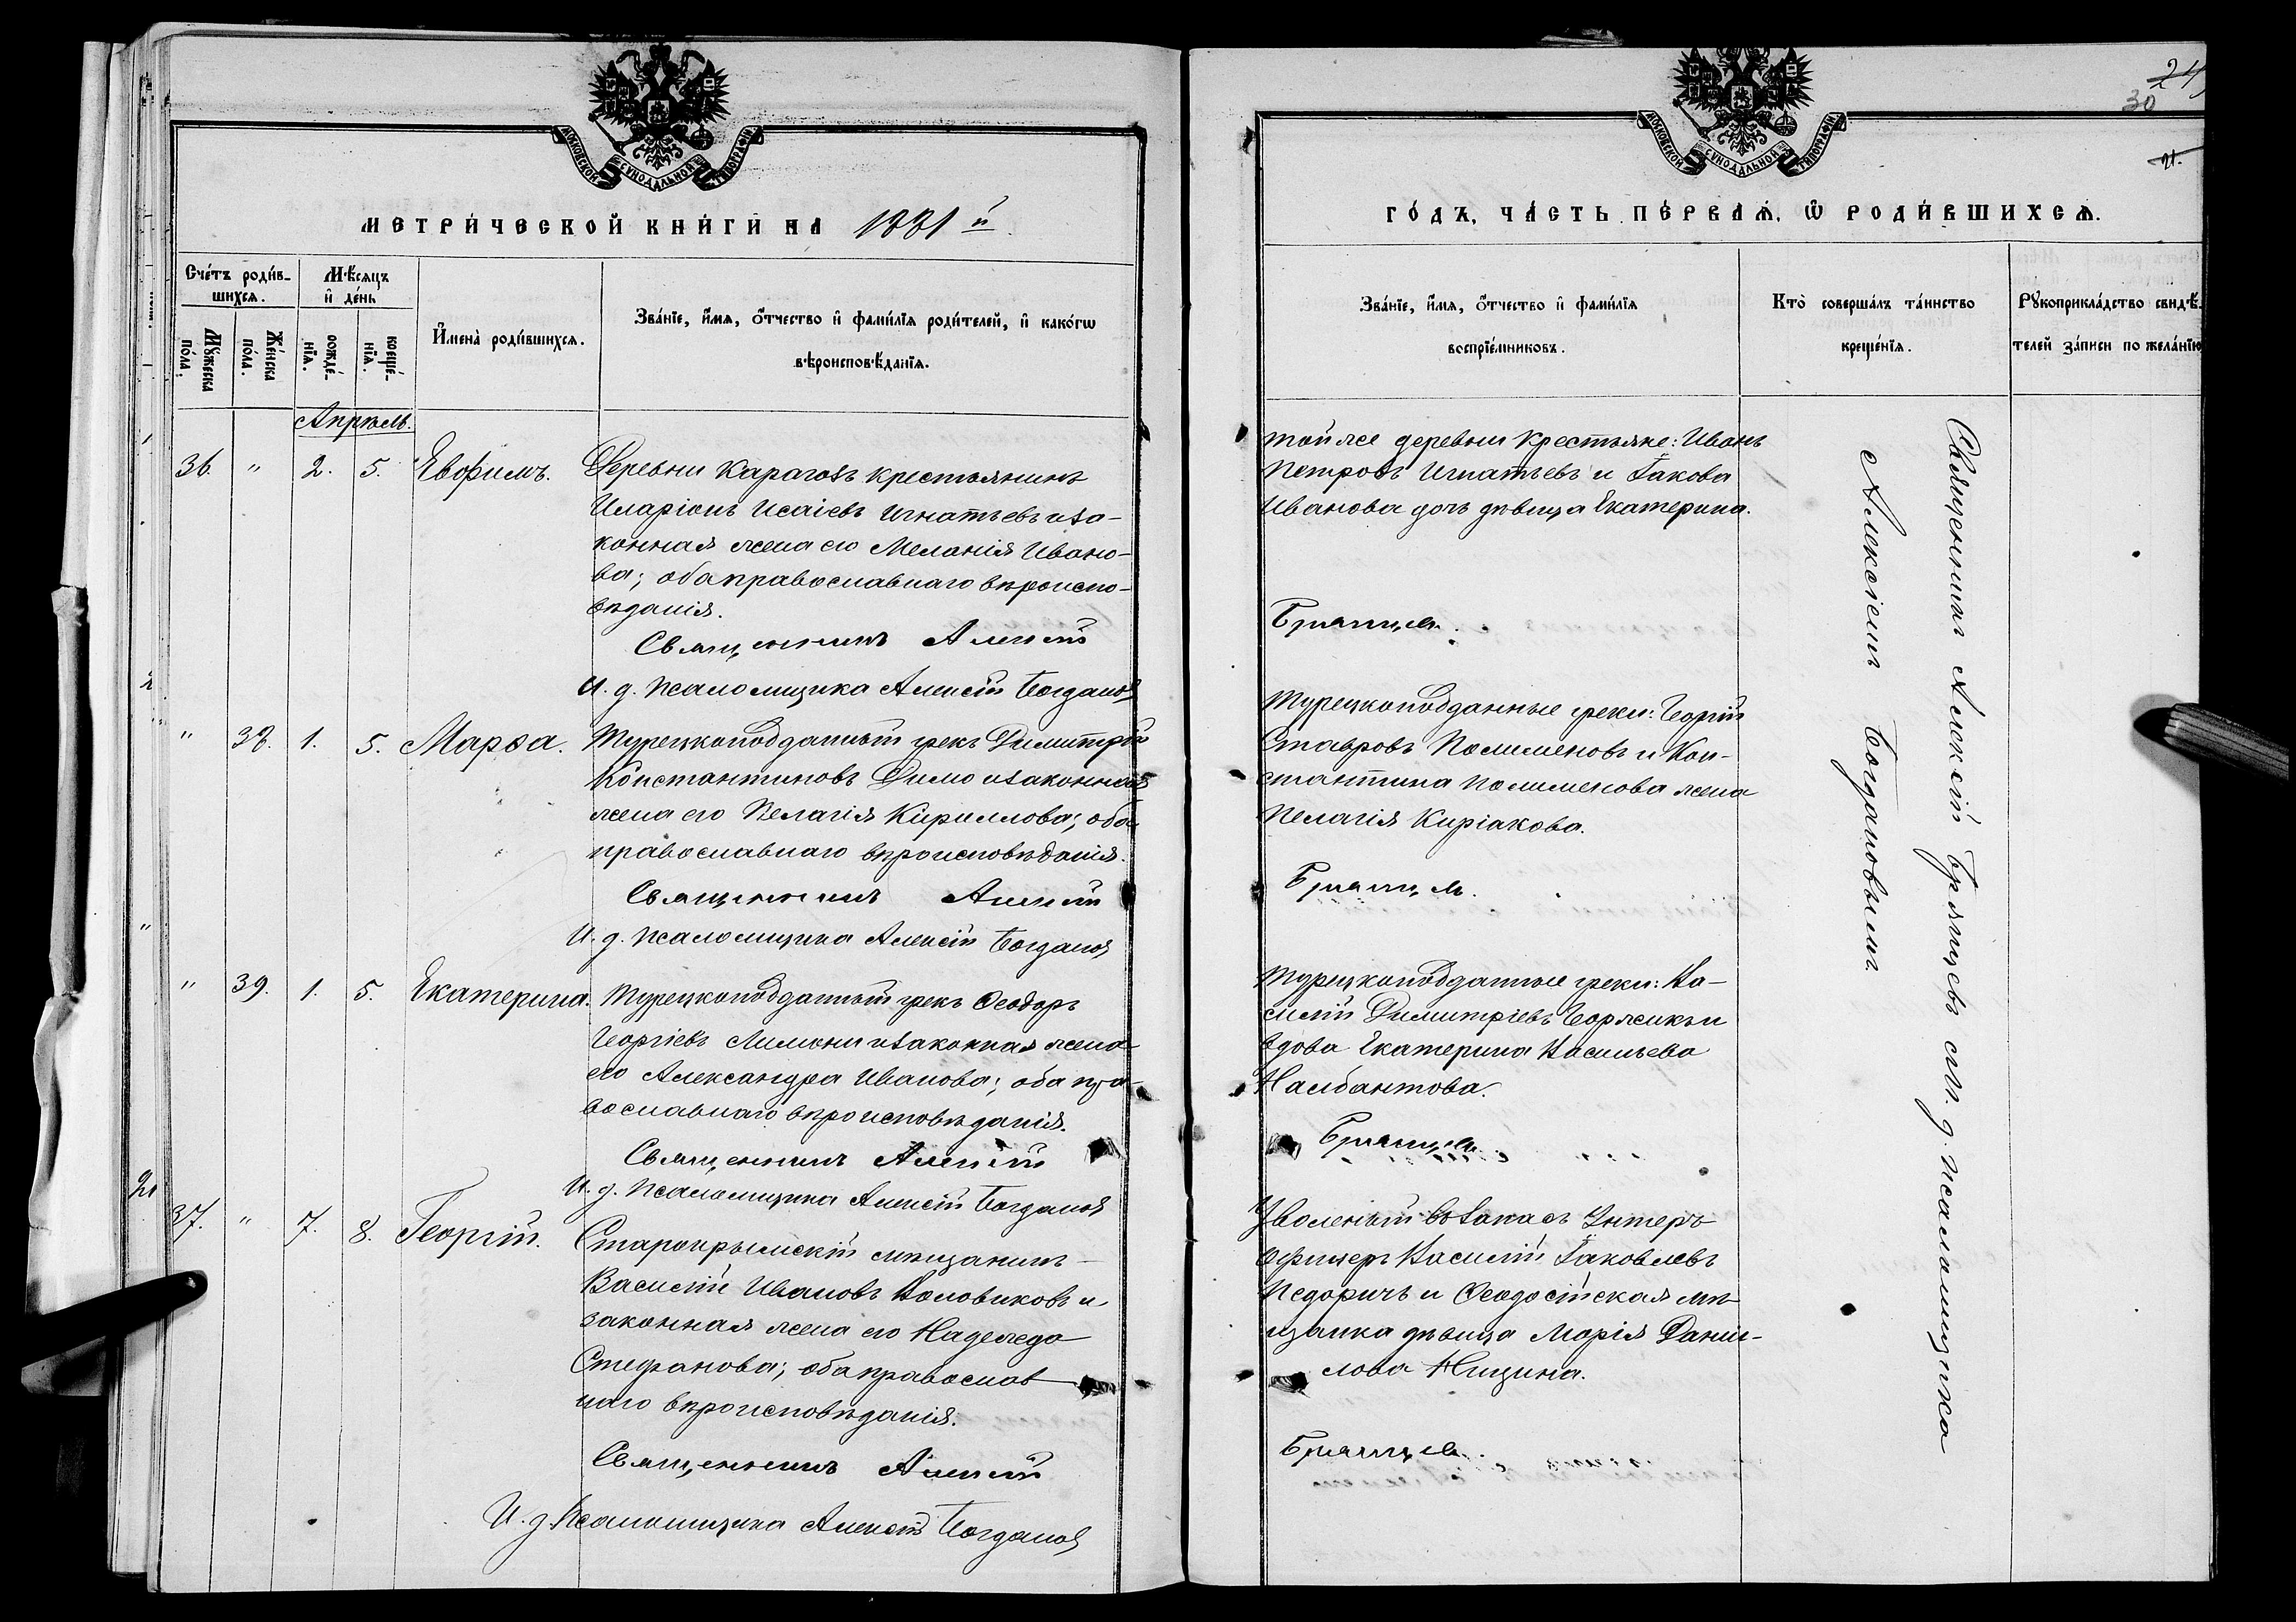 МОСКОВСКОЙ СѴНОДАЛЬНОЙ ТИПОГРАФІИ
МЕТРИЧЕСКОЙ КНИГИ НА 1881 й
Счетъ родив-
шихся.
Мѣсяцъ
и день
Мужеска
пола.
Женска
пола.
рожде-
нія.
креще-
нія.
Имена родившихся.
Званіе, имя, отчество и фамилія родителей, и какогѡ
вѣроисповѣданія.
Апрѣль.
36. " 2. 5. Евфимъ. Деревни Карагозъ крестьянинъ
Иларіонъ Исаіевъ Игнатьевъ и за-
конная жена его Меланія Ивано-
ва; оба православнаго вѣроиспо-
вѣданія.
Священникъ Алексій
И. д. псаломщика Алексій Богдановъ
" 38. 1. 5. Марѳа. Турецкоподданный грекъ Димитрій
Константиновъ Димо и законная
жена его Пелагія Кириллова; оба
православнаго вѣроисповѣданія.
Священникъ Алексій
И. д. псаломщика Алексій Богдановъ
" 39. 1. 5. Екатерина. Турецкоподданный грекъ Ѳеодоръ
Георгіевъ Лимони и законная жена
его Александра Иванова; оба пра-
вославнаго вѣроисповѣданія.
Священникъ Алексій
И. д. псаломщика Алексій Богдановъ
37. " 7. 8. Георгій. Старокрымскій мѣщанинъ
Василій Ивановъ Коловиковъ и
законная жена его Надежда
Стефанова; оба православ
наго вѣроисповѣданія.
Священникъ Алексій
И. д. Псаломщика Алексій Богдановъ
24
30
21.
МОСКОВСКОЙ СѴНОДАЛЬНОЙ ТИПОГРАФІИ
ГОДЪ, ЧАСТЬ ПЕРВАЯ, Ѡ РОДИВШИХСЯ.
Званіе, имя, отчество и фамилія
воспріемниковъ.
Кто совершалъ таинство
крещенія.
Рукоприкладство свидѣ-
телей записи по желанію
той же деревни крестьяне: Иванъ
Петровъ Игнатьевъ и Іакова
Иванова дочь дѣвица Екатерина.
Брянцевъ.
Турецкоподданные греки: Георгій
Ставровъ Полименовъ и Кон-
стантина Полименова жена
Пелагія Киріакова.
Брянцевъ.
Турецкоподданные греки: Ва-
силій Димитріевъ Горжикъ и
вдова Екатерина Васильева
Налбантова.
Брянцевъ.
Уволенный въ запасъ Унтеръ
Офицеръ Василій Іаковлевъ
Педоричъ и Ѳеодосійская мѣ
щанка дѣвица Марія Даніи-
лова Ницина.
Брянцевъ.
Священникъ Алексій Брянцевъ съ и. д. псаломщика
Алексіемъ Богдановымъ